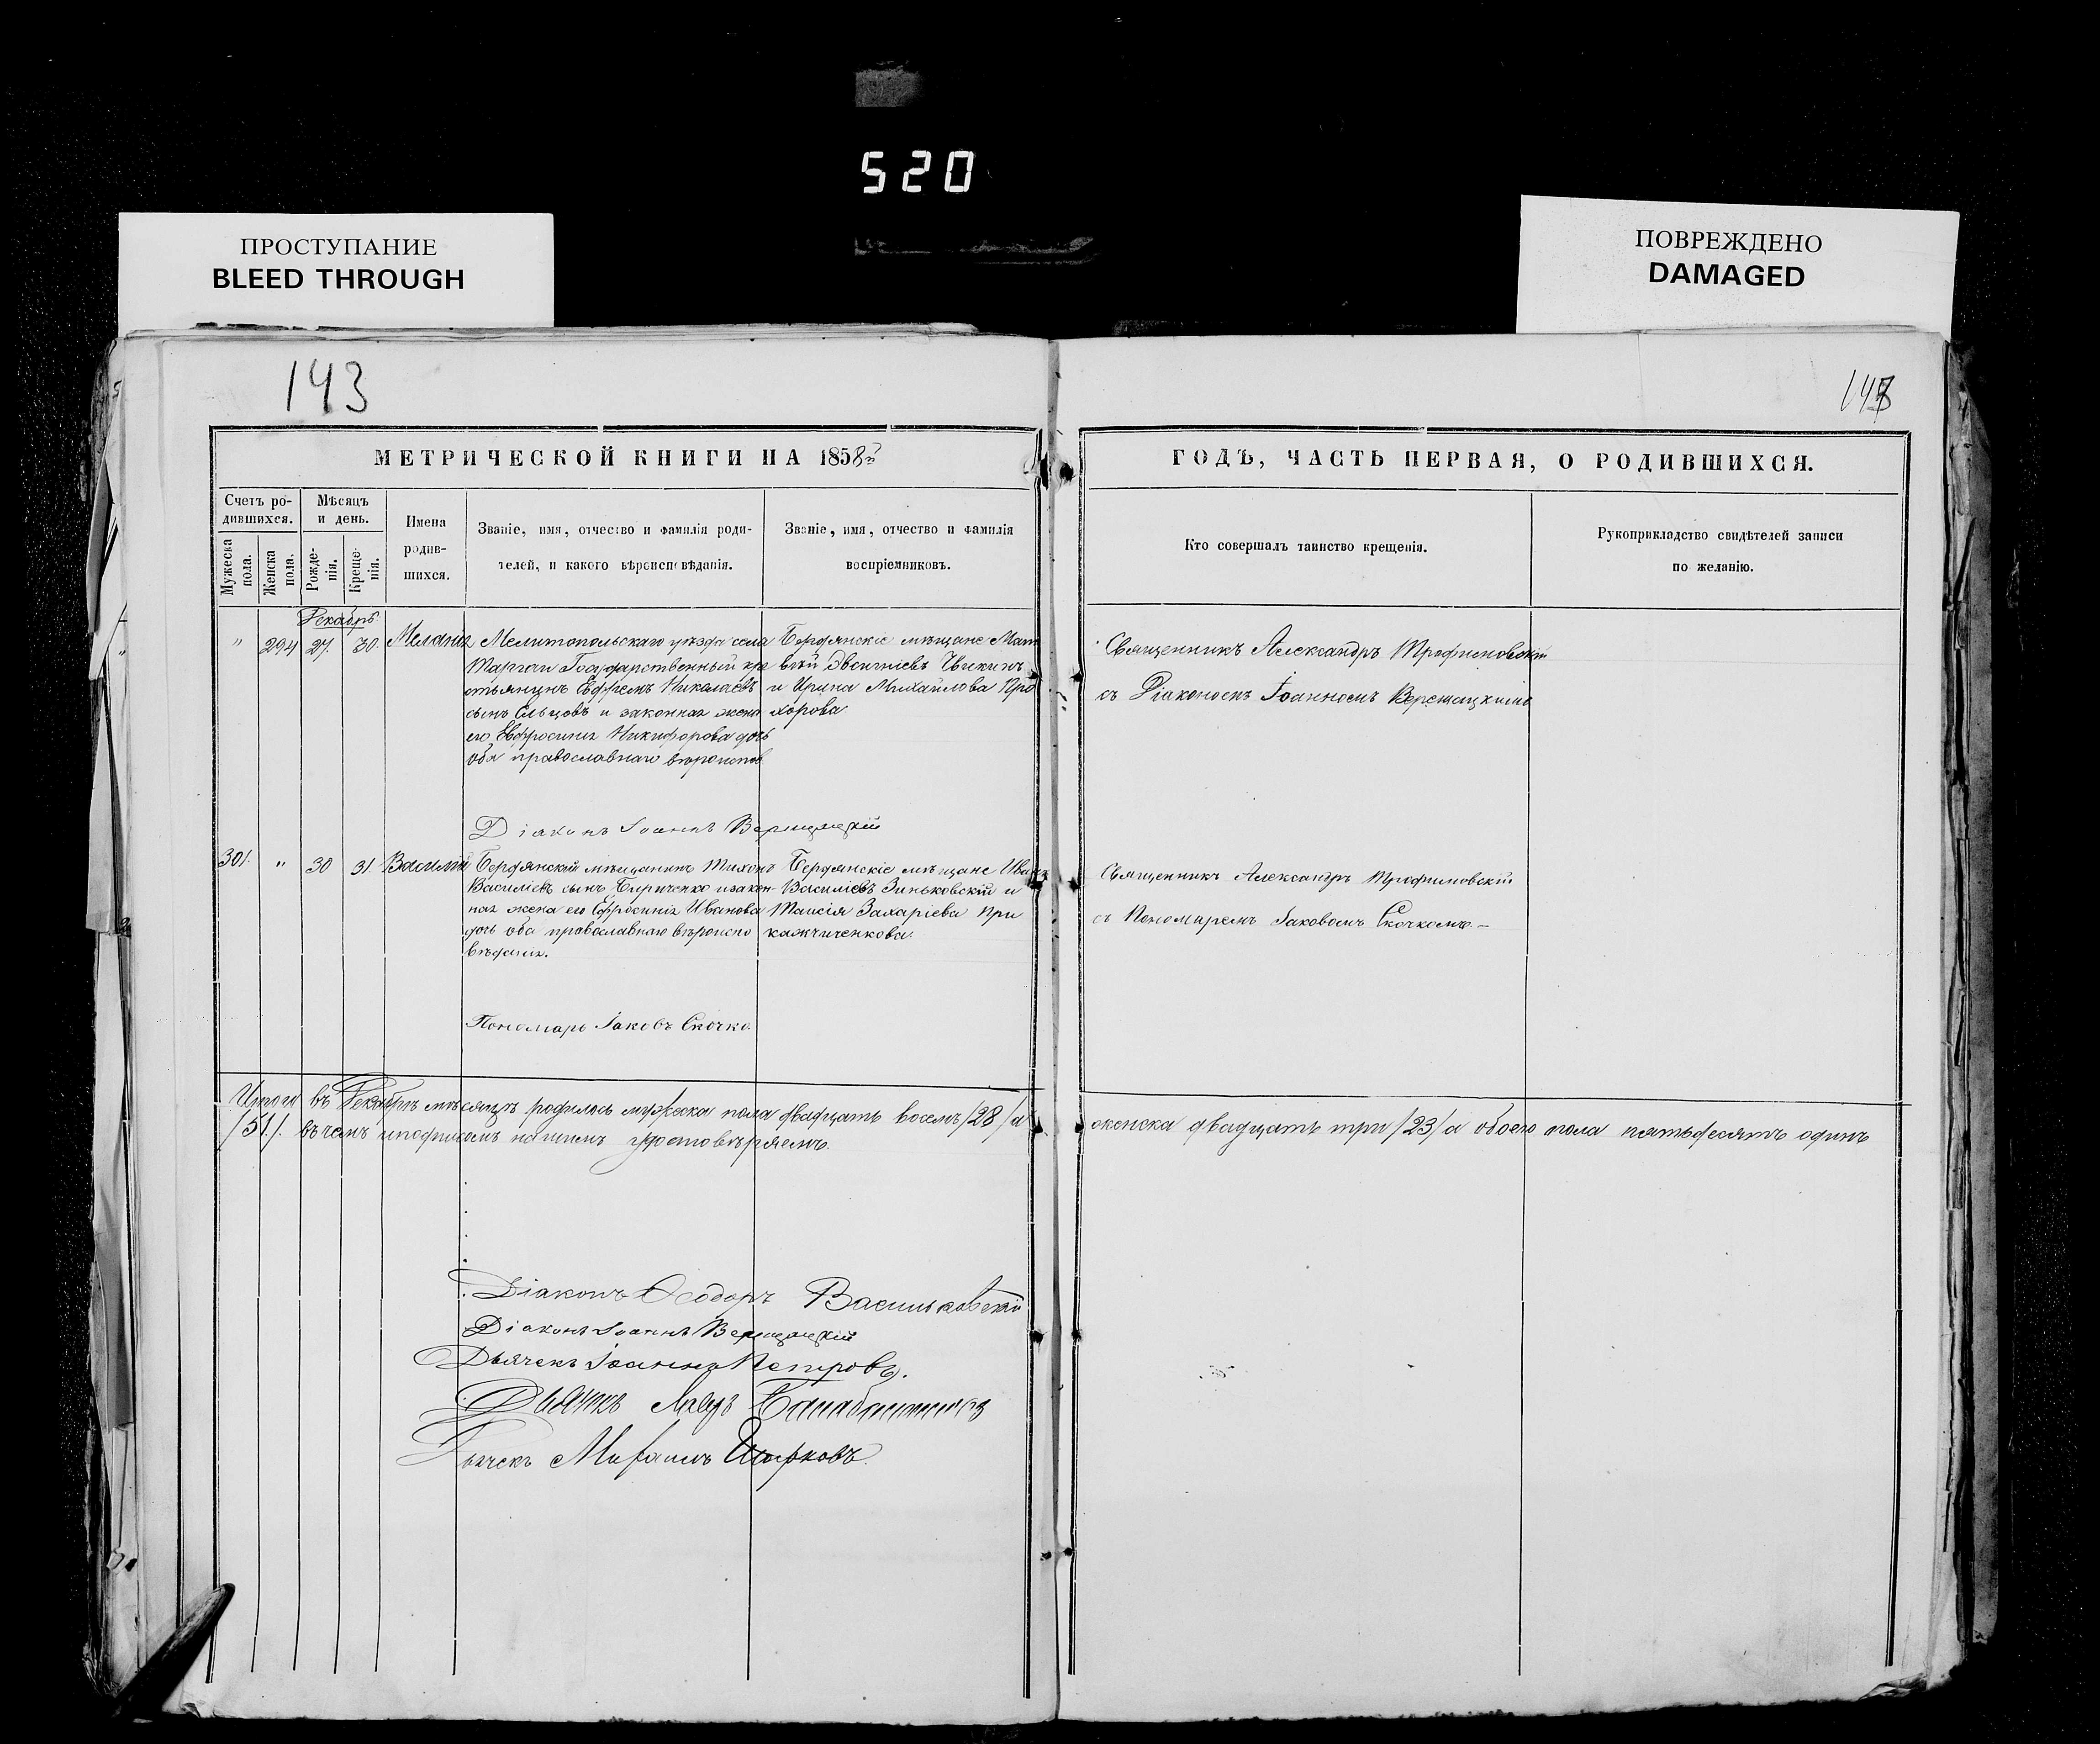 520
ПРОСТУПАНИЕ
BLEED THROUGH
ПОВРЕЖДЕНО
DAMAGED
143
МЕТРИЧЕСКОЙ КНИГИ НА 1858
Счетъ ро-
дившихся.
Мужеска
пола.
Женска
пола.
Мѣсяцъ
и день.
Рожде-
нія.
Креще-
нія.
Имена
родив-
шихся.
Званіе, имя, отчество и фамилія роди-
телей, и какого вѣроисповѣданія.
Званіе, имя, отчество и фамилія
воспріемниковъ.
ГОДЪ, ЧАСТЬ ПЕРВАЯ, О РОДИВШИХСЯ.
Кто совершалъ таинство крещенія.
Рукоприкладство свидѣтелей записи
по желанію.
Декабрь
" 294 27. 30. Меланія
Мелитопольскаго уѣзда села
Государственный кре
стьянинъ Ефремъ Николаевъ
сынъ Ельцовъ и законная жена
его Евфросинія Никифорова дочь
оба православнаго вѣроиспов
Бердянскіе мѣщане Мат
вѣй
и Ирина Михайлова Про
хорова
Священникъ Александръ Трофимовскій
съ Діакономъ Іоанномъ
Діаконъ Іоаннъ
301. " 30 31. Василій
Бердянскій мѣщанинъ Тихонъ
Василіевъ сынъ Бириченко и закон-
ная жена его Ефросинія Иванова
дочь оба православнаго вѣроиспо
вѣданія.
Бердянскіе мѣщане Иванъ
Василіевъ Зиньковскій и
Таисія Захаріева При
кажчиченкова.
Священникъ Александръ Трофимовскій
съ Пономаремъ Іаковомъ Скочкомъ.—
Пономарь Іаковъ Скочко
Итого въ Декабрѣ мѣсяцѣ родилось мужеска пола двадцать восемъ /28/ а
женска двадцать три /23/ а обоего пола пятьдесятъ одинъ
/51/. въ чемъ и подписомъ нашимъ удостовѣряемъ.
Діаконъ Ѳеодоръ Васильковскій
Діаконъ Іоаннъ
Дьячекъ Іоаннъ Петровъ.
Дьячекъ
Дьячекъ